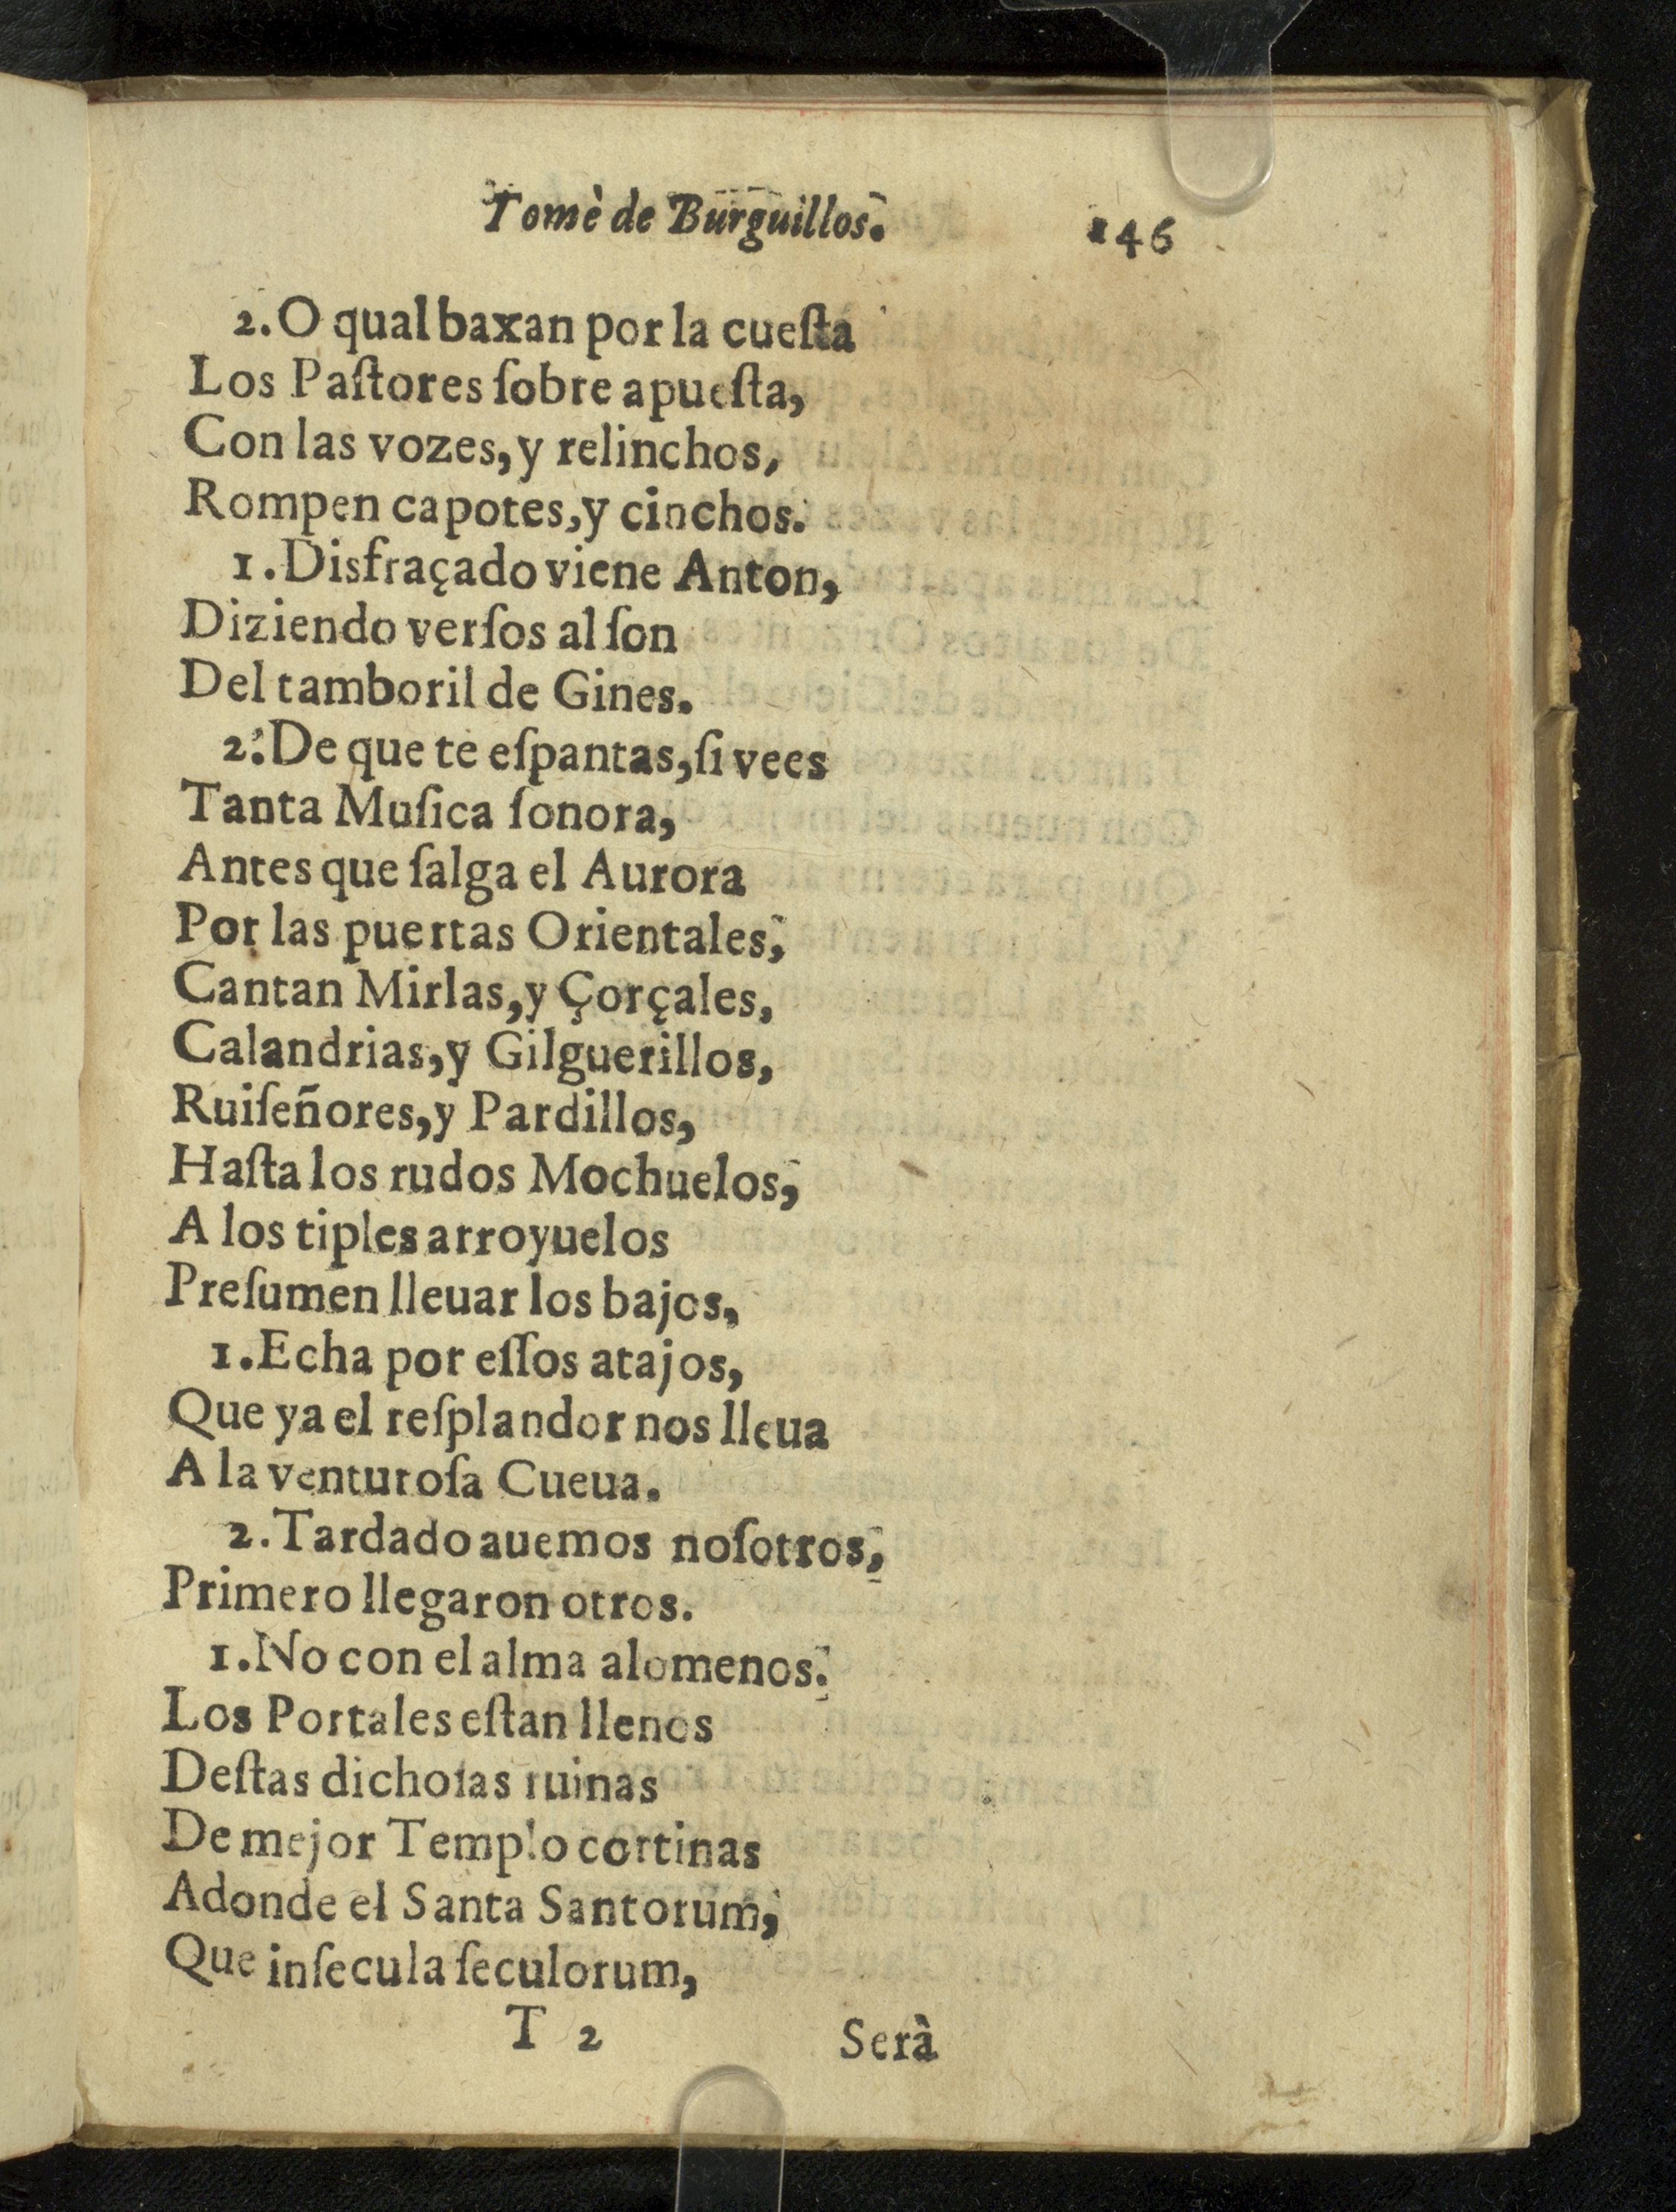 Tomè de Burguillos. 146
2. O qual baxan por la cueſta
Los Paſtores ſobre apueſta,
Con las vozes, y relinchos,
Rompen capotes, y cinchos.
1. Disfraçado viene Anton,
Diziendo verſos al ſon
Del tamboril de Gines.
2. De que te eſpantas, ſi vees
Tanta Muſica ſonora,
Antes que ſalga el Aurora
Por las puertas Orientales,
Cantan Mirlas, y Çorçales,
Calandrias, y Gilguerillos,
Ruiſeñores, y Pardillos,
Haſta los rudos Mochuelos,
A los tiples arroyuelos
Preſumen lleuar los bajos,
1. Echa por eſſos atajos,
Que ya el reſplandor nos lleua
A la venturoſa Cueua.
2. Tardado auemos noſotros,
Primero llegaron otros.
1. No con el alma alomenos.
Los Portales eſtan llenos
Deſtas dichoſas ruinas
De mejor Templo cortinas
Adonde el Santa Santorum,
Que inſecula ſeculorum,
T 2 Serà